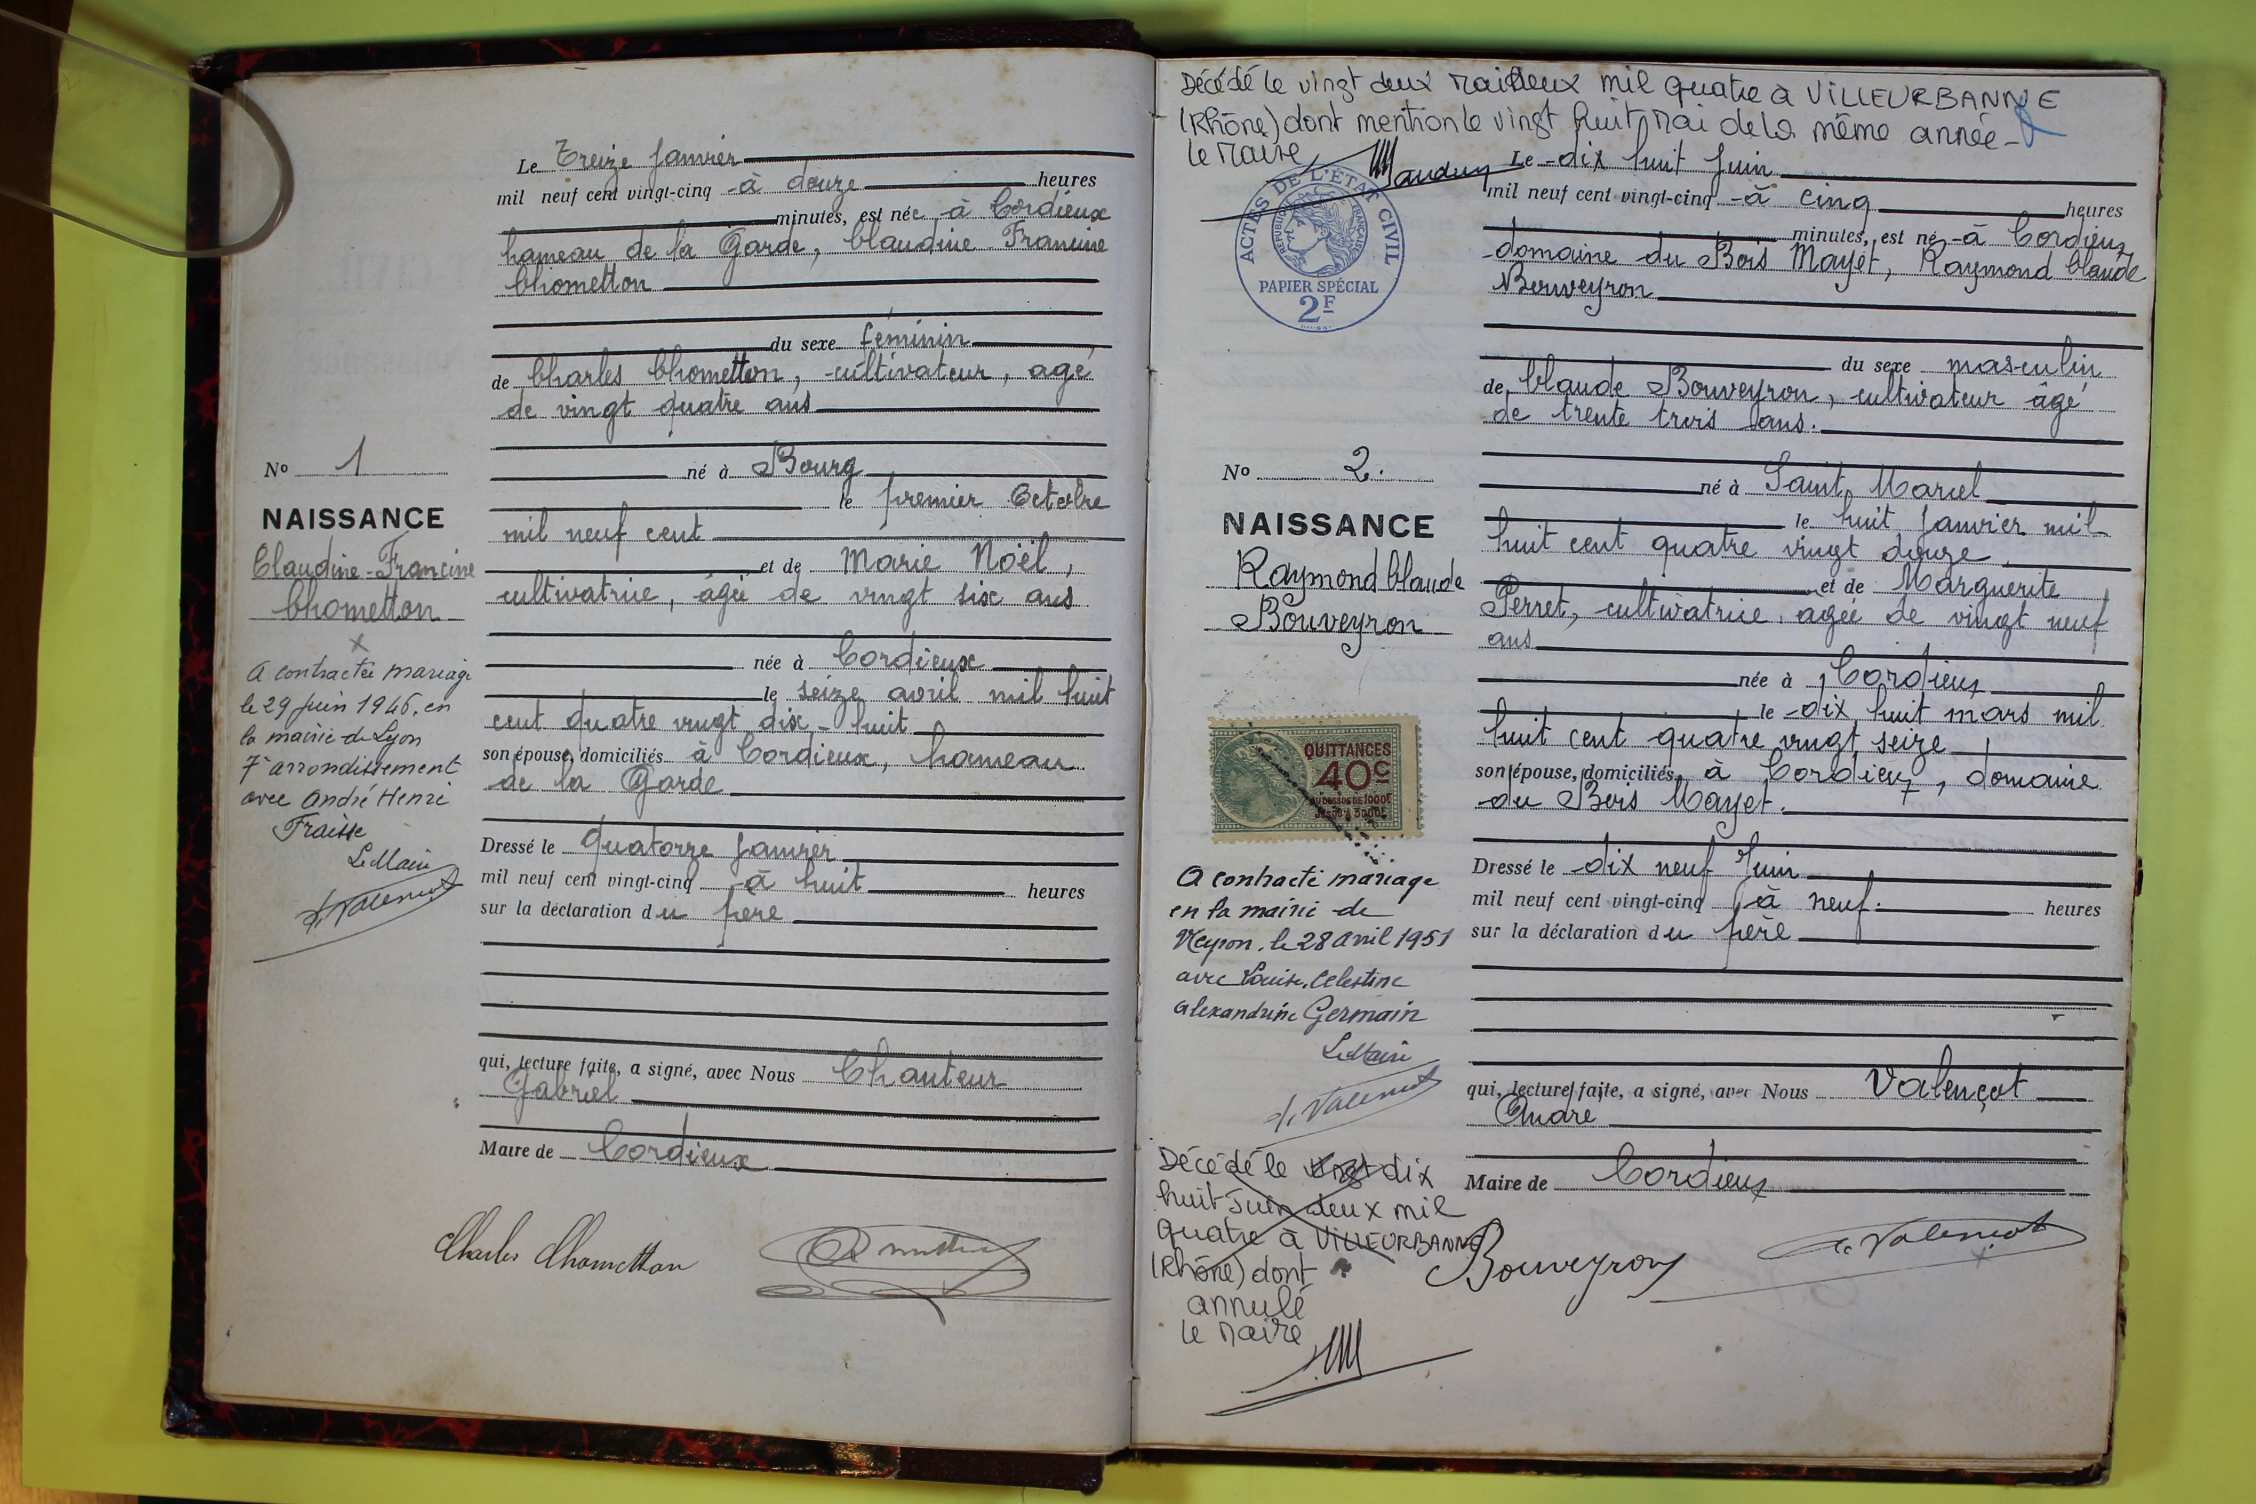 Le Treize Janvier
mil neuf cent vingt-cinq à douze heures
minutes, est née à Cordieux
hameau de la Garde, Claudine Francine
Chometton
du sexe féminin
de Charles Chometton, cultivateur, agé
de vingt quatre ans
né à Bourg
le premier Octobre
mil neuf cent
et de Marie Noël,
cultivatrice, âgée de vingt six ans
née à Cordieux
le seize avril mil huit
cent quatre vingt dix-huit
son épouse, domiciliés à Cordieux, hameau
de la Garde
Dressé le quatorze Janvier
mil neuf cent vingt-cinq à huit heures
sur la déclaration du père
qui, lecture faite, a signé, avec Nous Chanteur
Gabriel
Maire de Cordieux
Charles Chometton
No 1
NAISSANCE
Claudine-Francine
Chometton
A contracté mariage
le 29 Juin 1946, en
la mairie de Lyon
7e arrondissement
avec André Henri
Fraisse
Le Maire
Décédé le vingt deux Mai deux mil quatre à VILLEURBANNE
(Rhône) dont mention le vingt huit Mai de la même année-
Le Maire
ACTES DE L'ÉTAT CIVIL
RÉPUBLIQUE FRANÇAISE
PAPIER SPÉCIAL
2F
Le dix huit Juin
mil neuf cent vingt-cinq à cinq heures
minutes, est né à Cordieux
domaine du Bois Mayet, Raymond Claude
Bouveyron
du sexe masculin
de Claude Bouveyron, cultivateur âgé
de trente trois ans.
né à Saint Marcel
le huit Janvier mil
huit cent quatre vingt douze
et de Marguerite
Perret, cultivatrice, agée de vingt neuf
ans
née à Cordieux
le dix huit mars mil
huit cent quatre vingt seize
son épouse, domiciliés à Cordieux, domaine
du Bois Mayet.
Dressé le dix neuf Juin
mil neuf cent vingt-cinq à neuf. heures
sur la déclaration du père
qui, lecture faite, a signé, avec Nous Valençot
André
Maire de Cordieux
Bouveyron
No 2.
NAISSANCE
Raymond Claude
Bouveyron
QUITTANCES
40c
AU DESSUS DE 1000F
JUSQU'A 3000F
A contracté mariage
en la mairie de
Neyron, le 28 avril 1951
avec Louise, Celestine
alexandrine Germain
Le Maire
Décédé le vingt dix
huit Juin deux mil
quatre à VILLEURBANNE
(Rhône) dont
annulé
Le Maire